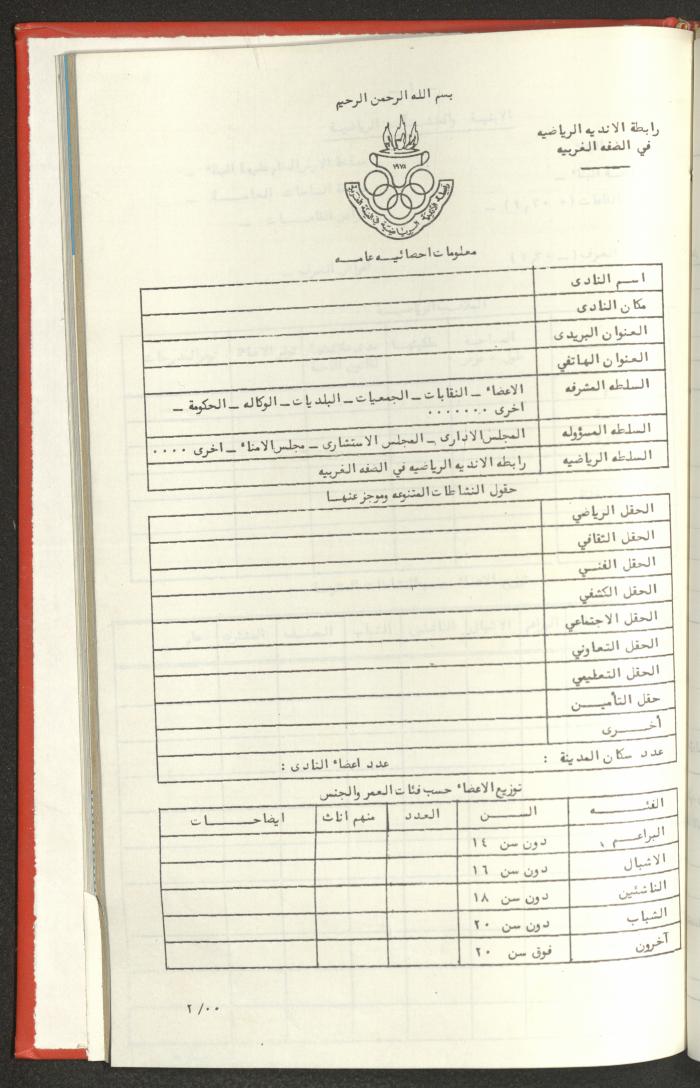 بسم الله الرحمن الرحيم
رابطة الانديه الرياضيه
في الضفه الغربيه
١٩٧٨
معلومات احصائيـــه عامـــه
اســم النادى
مكان النادى
العنوان البريدى
العنوان الهاتفي
السلطه المشرفه
الاعضاء ـ النقابات ـ الجمعيات ـ البلديات ـ الوكاله ـ الحكومة ـ
اخرى ٠٠٠٠٠٠٠
السلطه المسؤوله المجلس الادارى ـ المجلس الاستشارى ـ مجلس الامناء ـ اخرى ٠٠٠٠
السلطه الرياضيه رابطه الانديه الرياضيه في الضفه الغربيه
حقول النشاطات المتنوعه وموجز عنهــا
الحقل الرياضي
الحقل الثقافي
الحقل الفنــي
الحقل الكشفي
الحقل الاجتماعي
الحقل التعاوني
الحقل التعليمي
حقل التأميــــن
أخــــرى
عدد سكان المدينة : عدد اعضاء النادى :
توزيع الاعضاء حسب فئات العمر والجنس
الفئـــــه الســــــن العـدد منهم اناث ايضاحـــــــات
البراعــم دون سن ١٤
الاشبال دون سن ١٦
الناشئين دون سن ١٨
الشباب دون سن ٢٠
آخرون فوق سن ٢٠
٢/٠٠